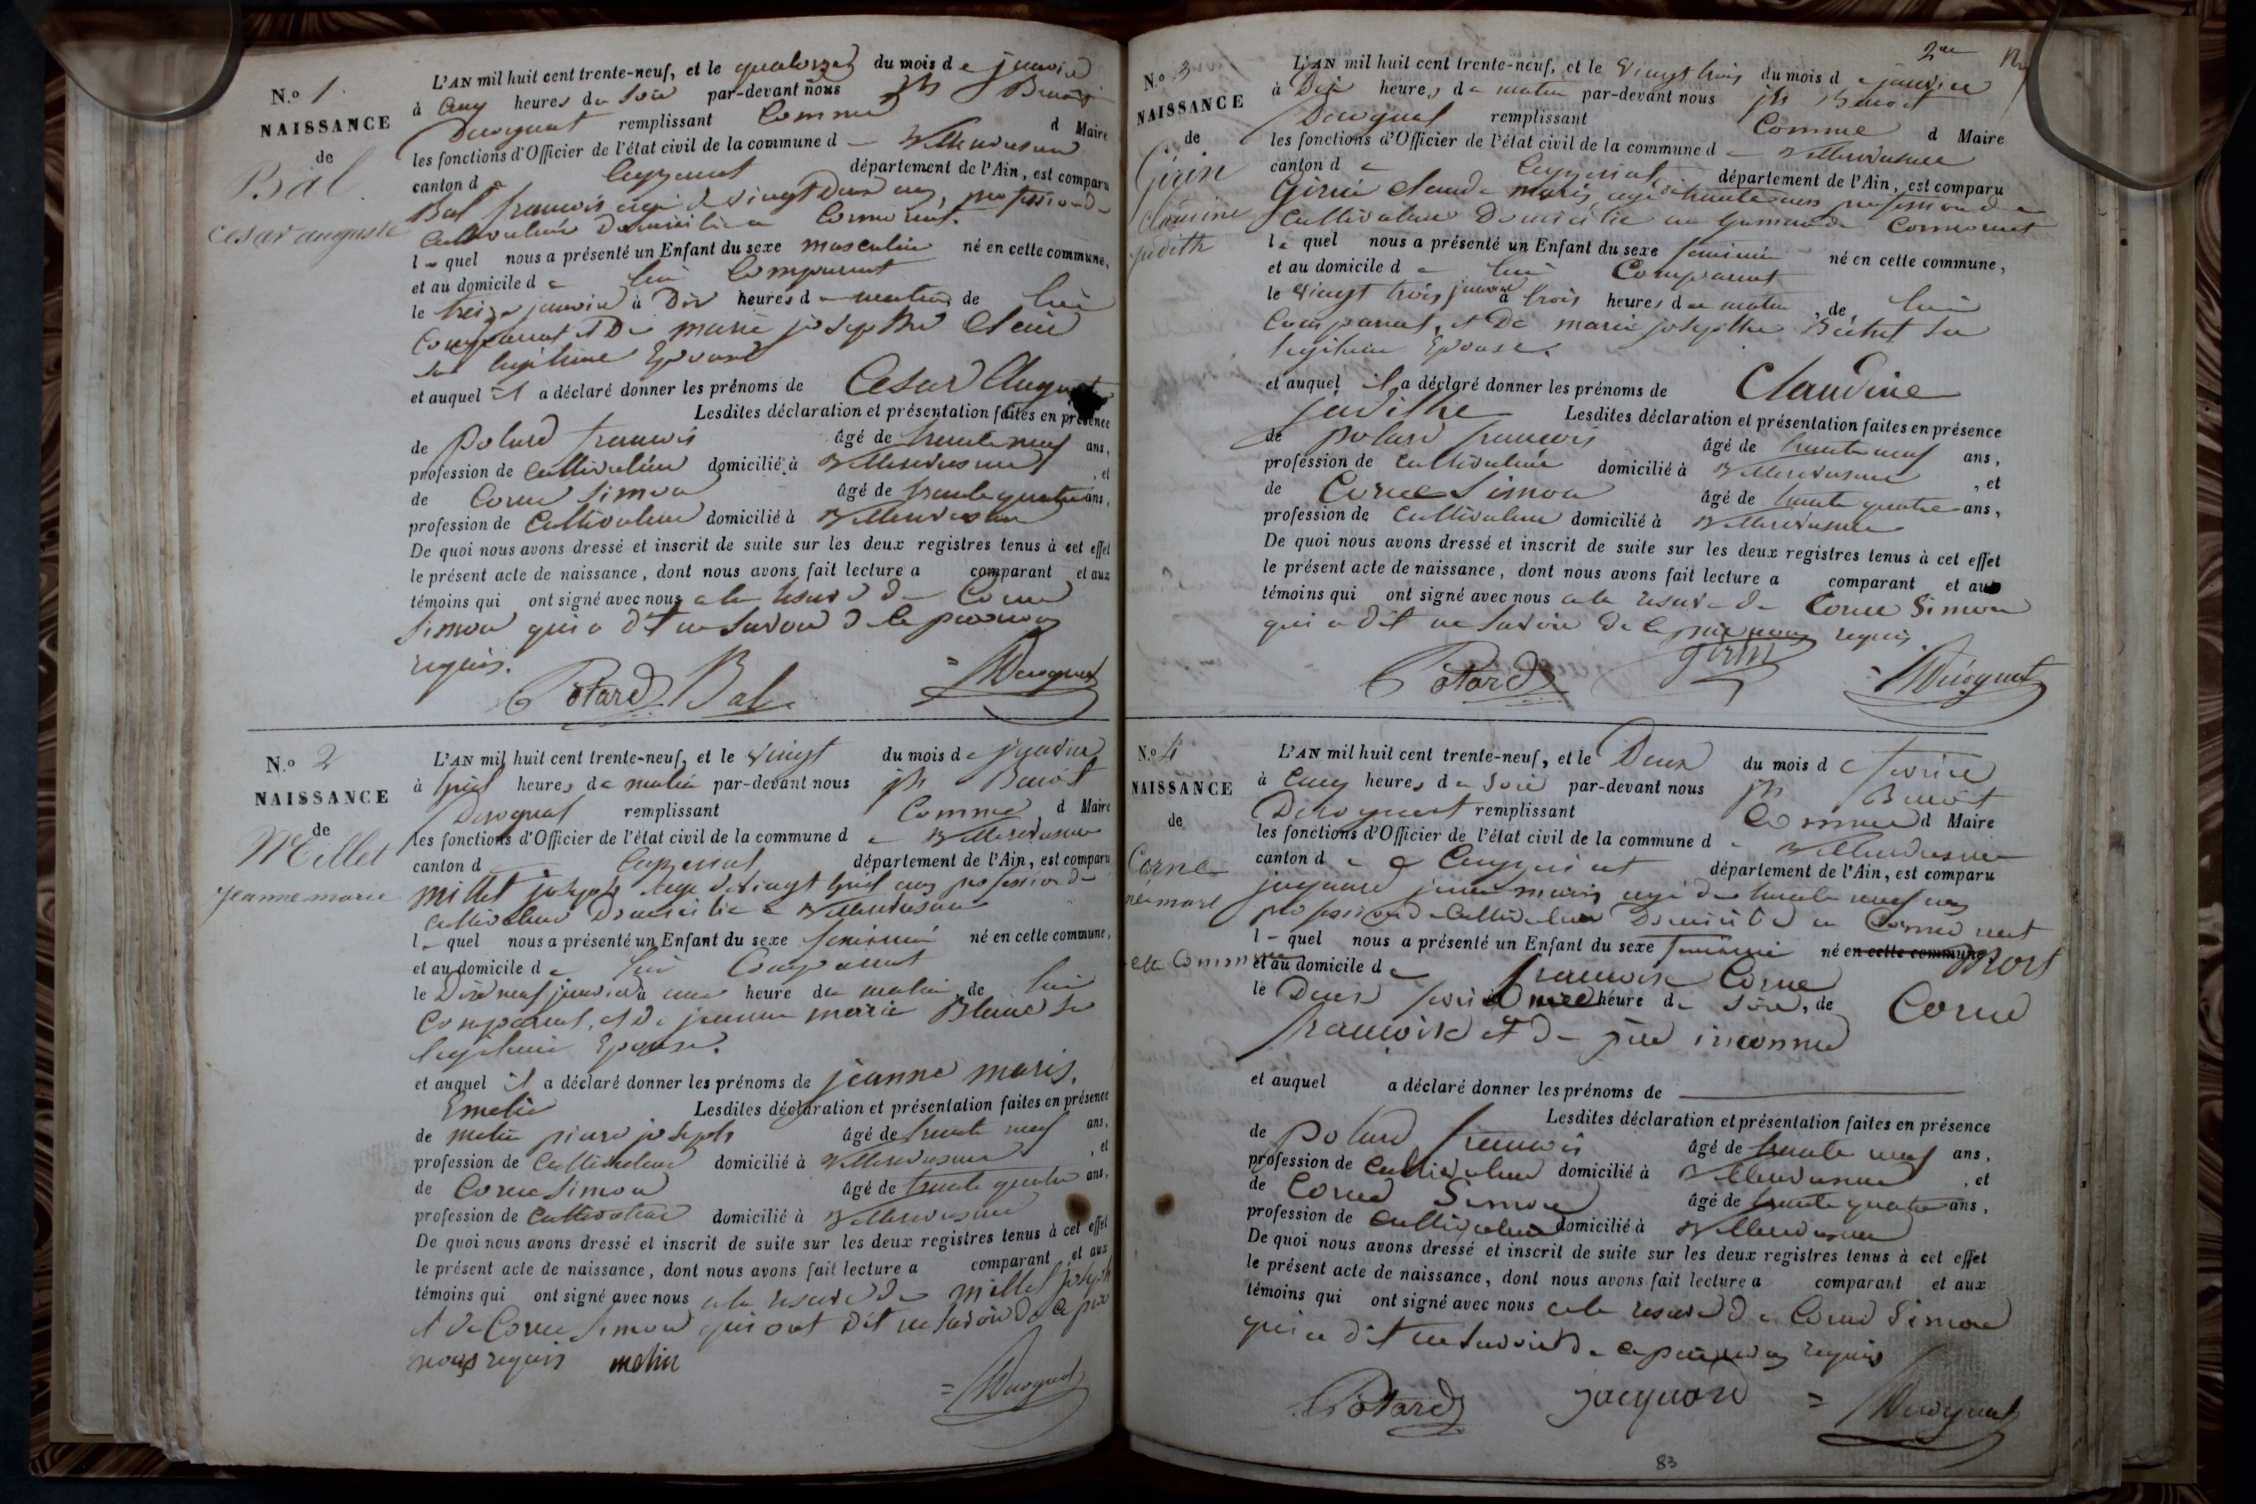 N.o 1
NAISSANCE
de
Bal
Cesar auguste
L'AN mil huit cent trente-neuf, et le quatorze du mois de janvier
à cinq heures du soir par-devant nous jh Benoit
Ducognat remplissant Comme
les fonctions d'Officier de l'état civil de la commune de Villereversure d Maire
canton de Ceyzeriat département de l'Ain, est comparu
Bal francois agé de vingt Deux ans, profession de
Cultivateur Domicilié a
lequel nous a présenté un Enfant du sexe masculin né en cette commune,
et au domicile de lui Comparant
le treize janvier à Dix heures du matin de lui
Comparant et De marie josephte
sa legitime Epouse
et auquel il a déclaré donner les prénoms de Cesar Auguste
Lesdites déclaration et présentation faites en présence
de Potard francois âgé de trente neuf ans,
profession de Cultivateur domicilié à Villereversure, et
de Corne Simon âgé de trente quatre ans,
profession de Cultivateur domicilié à Villereversure
De quoi nous avons dressé et inscrit de suite sur les deux registres tenus à cet effet
le présent acte de naissance, dont nous avons fait lecture a comparant et aux
témoins qui ont signé avec nous a la reserve de Corne
Simon qui a dit ne savoir de ce par nous
requis.
Potard Bal Ducognat
N.o 2
NAISSANCE
de
Millet
jeanne marie
L'AN mil huit cent trente-neuf, et le vingt du mois de janvier
à huit heures du matin par-devant nous jh Benoit
Ducognat remplissant Comme d Maire
les fonctions d'Officier de l'état civil de la commune de Villereversure
canton de Ceyzeriat département de l'Ain, est comparu
millet joseph age de vingt huit ans profession de
cultivateur Domicilié a Villereversure
lequel nous a présenté un Enfant du sexe feminin né en cette commune,
et au domicile de lui Comparant
le Dixneuf janvier à une heure du matin de lui
Comparant, et de jeanne marie Blanc sa
legitime Epouse.
et auquel il a déclaré donner les prénoms de jeanne marie,
Emelie Lesdites déclaration et présentation faites en présence
de melin pierre joseph âgé de trente neuf ans,
profession de Cultivateur domicilié à Villereversure, et
de Corne Simon âgé de trente quatre ans,
profession de Cultivateur domicilié à Villereversure
De quoi nous avons dressé et inscrit de suite sur les deux registres tenus à cet effet
le présent acte de naissance, dont nous avons fait lecture a comparant et aux
témoins qui ont signé avec nous a la reserve de millet joseph
et de Corne Simon qui ont dit ne savoir de ce par
nous requis melin
Ducognat
2me
N.o 3
NAISSANCE
de
Girin
claudine
judith
L'AN mil huit cent trente-neuf, et le vingt trois du mois de janvier
à Dix heures du matin par-devant nous jh Benoit
Ducognat remplissant Comme d Maire
les fonctions d'Officier de l'état civil de la commune de Villereversure
canton de Ceyzeriat département de l'Ain, est comparu
Girin claude marie agé de trente ans profession de
Cultivateur Domicilié au
lequel nous a présenté un Enfant du sexe feminin né en cette commune,
et au domicile de lui Comparant
le vingt trois janvier à trois heures du matin, de lui
Comparant, et De marie josephte sa
legitime Epouse.
et auquel il a déclaré donner les prénoms de Claudine
judithe Lesdites déclaration et présentation faites en présence
de potard francois âgé de trente neuf ans,
profession de cultivateur domicilié à Villereversure, et
de Corne Simon âgé de trente quatre ans,
profession de cultivateur domicilié à Villereversure
De quoi nous avons dressé et inscrit de suite sur les deux registres tenus à cet effet
le présent acte de naissance, dont nous avons fait lecture a comparant et aux
témoins qui ont signé avec nous a la reserve de Corne Simon
qui a dit ne savoir de ce par nous requis
Potard girin Ducognat
N.o 4
NAISSANCE
de
Corne
né mort
L'AN mil huit cent trente-neuf, et le Deux du mois de fevrier
à Cinq heures du soir par-devant nous jh Benoit
Ducognat remplissant Comme d Maire
les fonctions d'Officier de l'état civil de la commune de Villereversure
canton de Ceyzeriat département de l'Ain, est comparu
jaquard jean marie agé de trente neuf ans
profession de Cultivateur Domicilié a
lequel nous a présenté un Enfant du sexe feminin né en cette commune, mort
et au domicile de francoise Corne
le Deux fevrier à une heure du soir, de Corne
francoise et de père inconnu
et auquel a déclaré donner les prénoms de
Lesdites déclaration et présentation faites en présence
de potard francois âgé de trente neuf ans,
profession de Cultivateur domicilié à Villereversure, et
de Corne Simon âgé de trente quatre ans,
profession de Cultivateur domicilié à Villereversure
De quoi nous avons dressé et inscrit de suite sur les deux registres tenus à cet effet
le présent acte de naissance, dont nous avons fait lecture a comparant et aux
témoins qui ont signé avec nous a la reserve de Corne Simon
qui a dit ne savoir de ce par nous requis
Potard jacquard Ducognat
83